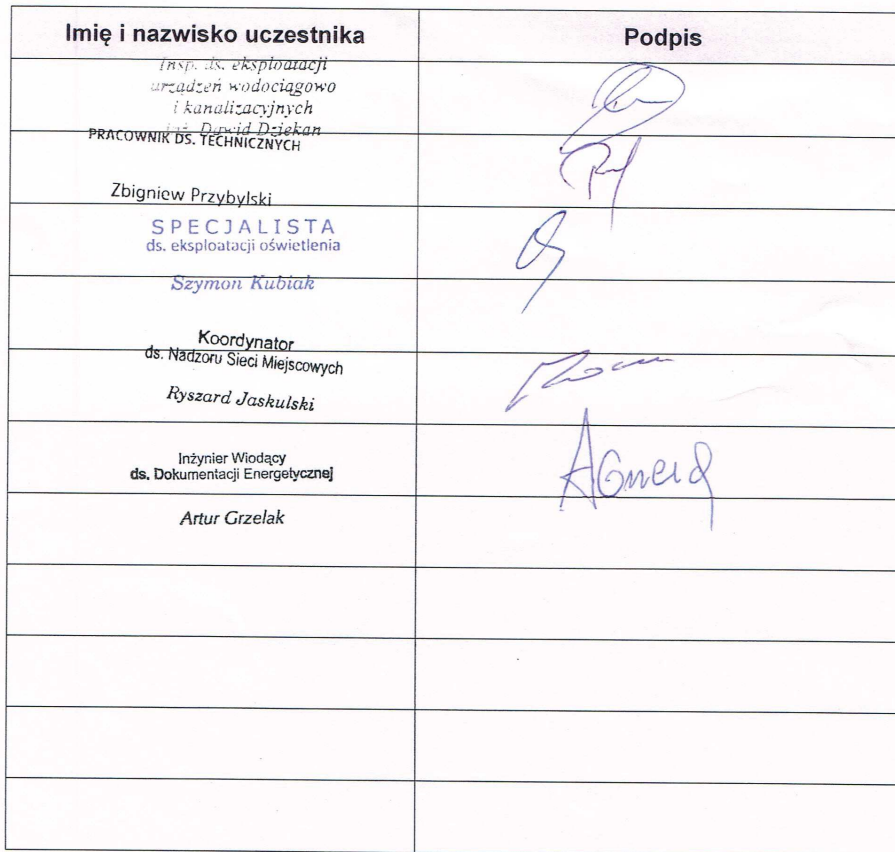 Imię i nazwisko uczestnika
Podpis
Insp. ds. eksploatacji
urządzeń wodociągowo
i kanalizacyjnych
inż. Dawid Dziekan
PRACOWNIK DS. TECHNICZNYCH
Zbigniew Przybylski
SPECJALISTA
ds. eksploatacji oświetlenia
Szymon Kubiak
Koordynator
ds. Nadzoru Sieci Miejscowych
Ryszard Jaskulski
Inżynier Wiodący
ds. Dokumentacji Energetycznej
Artur Grzelak